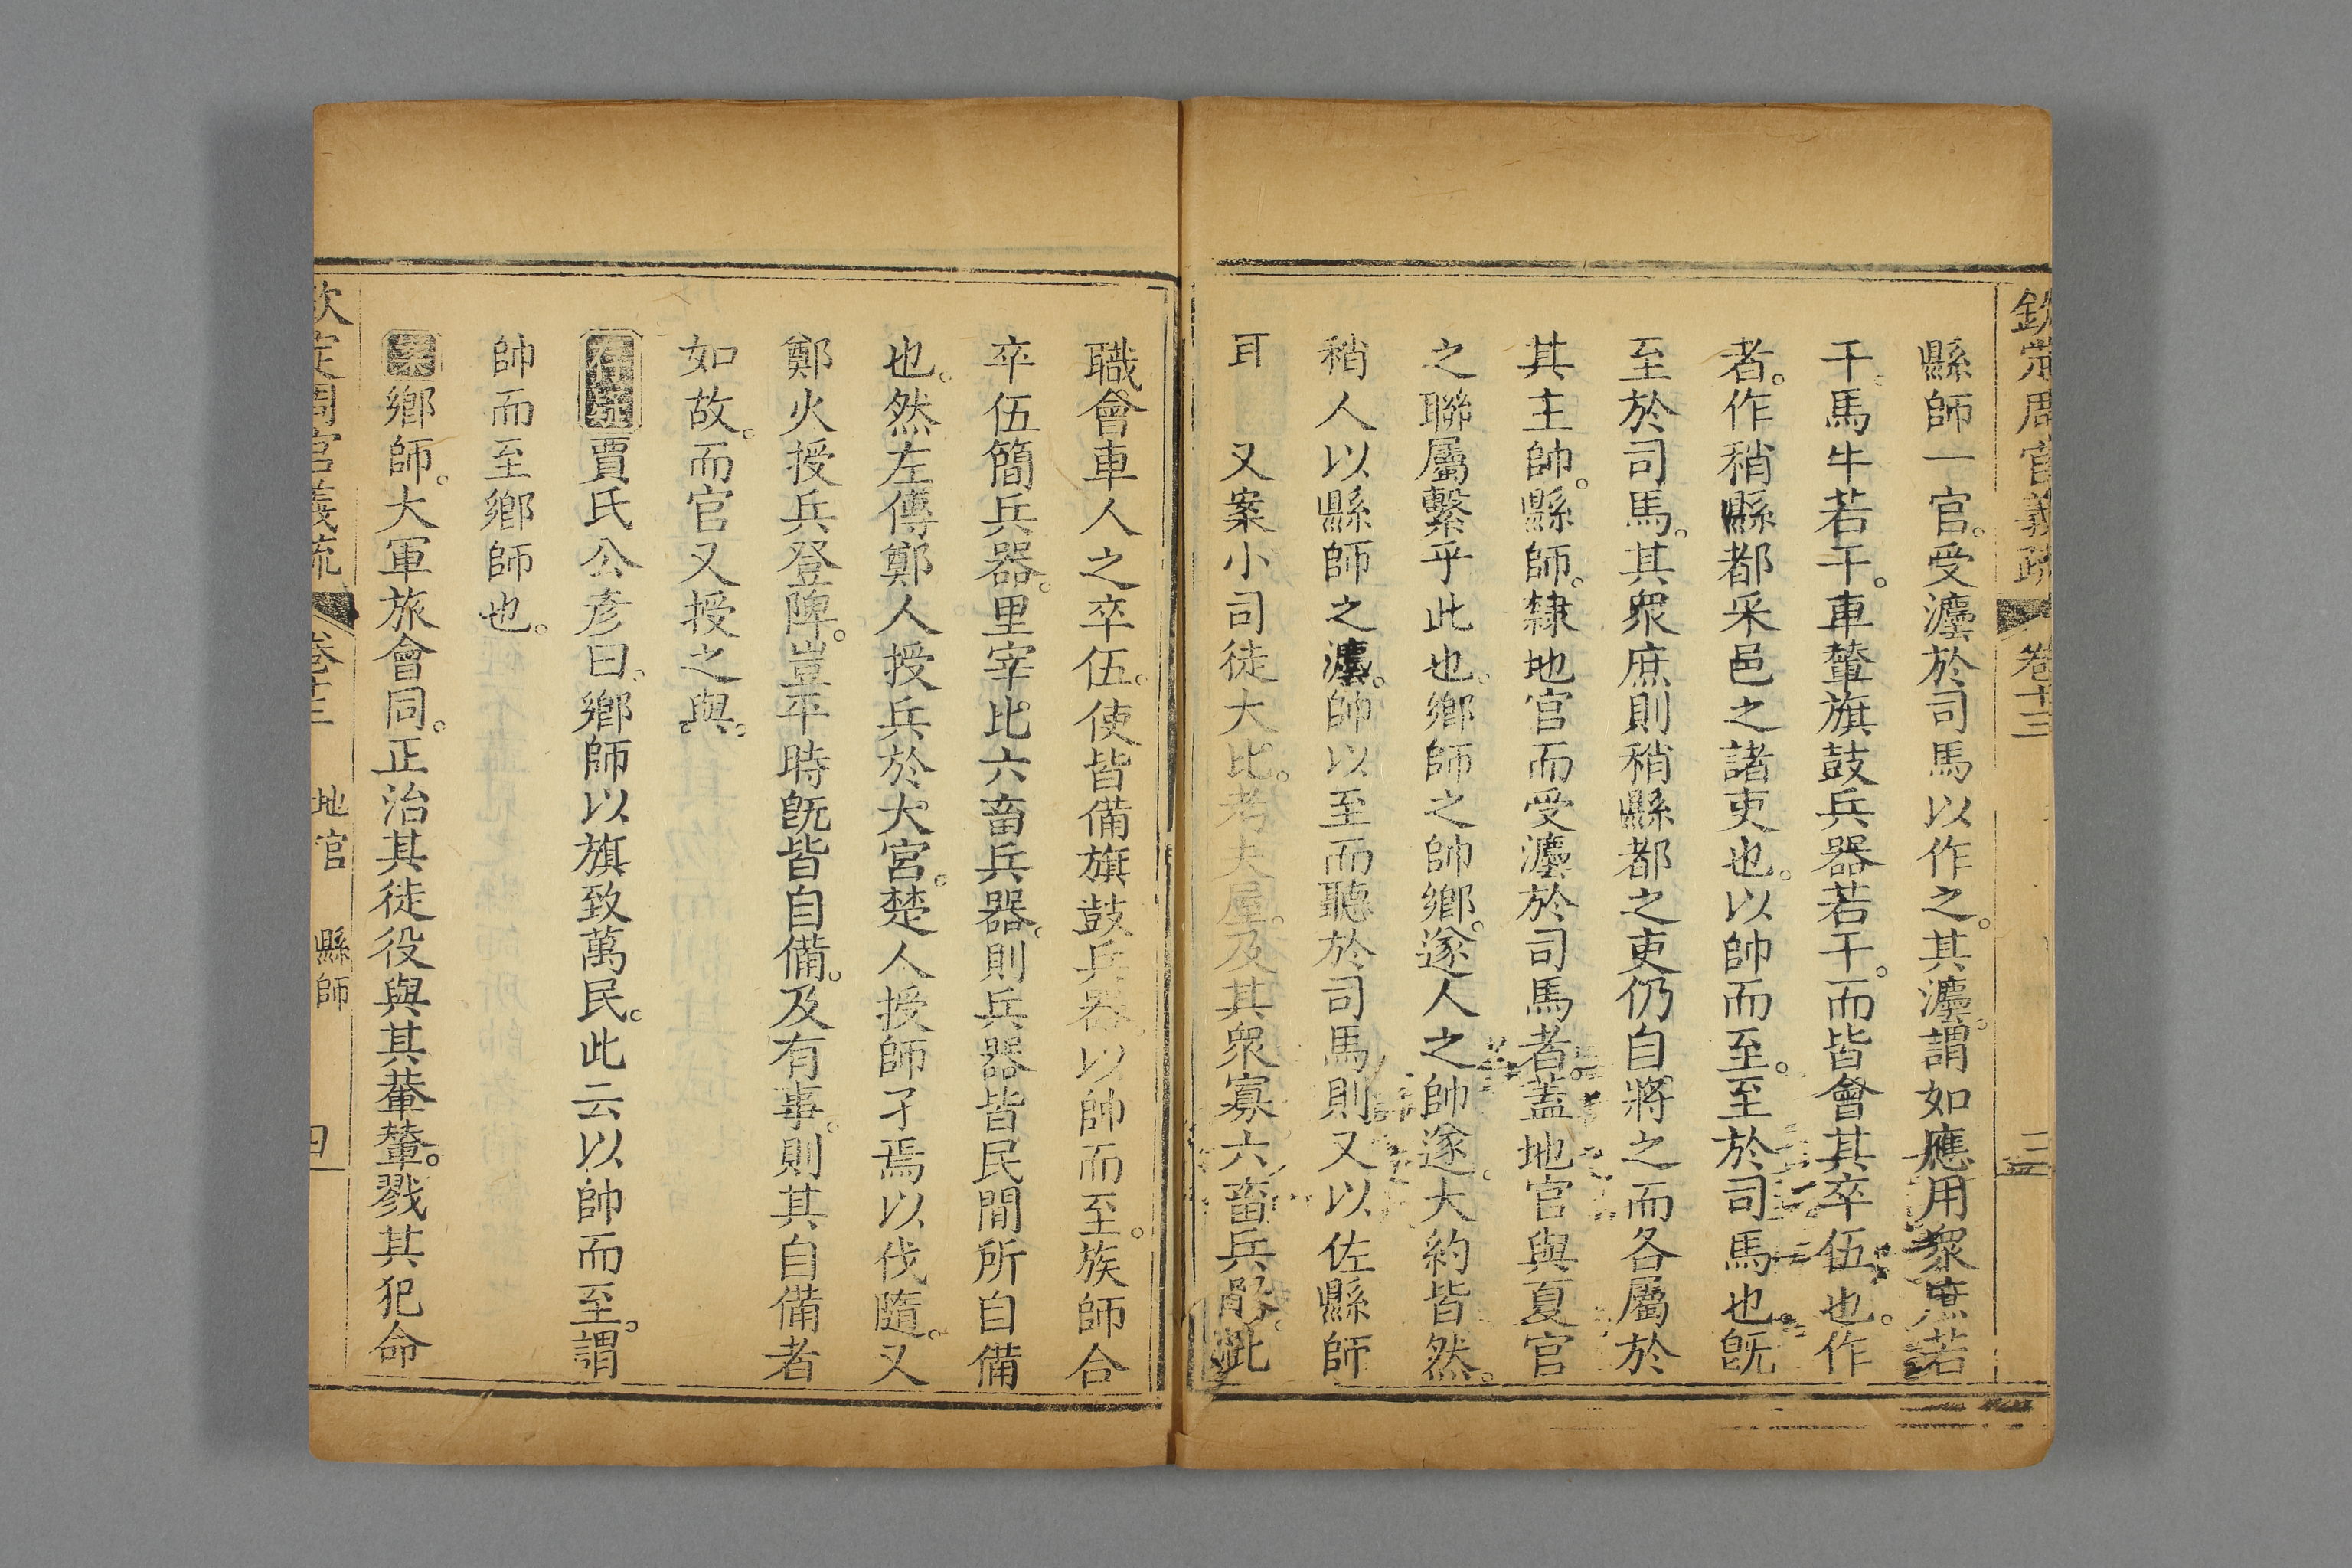 欽定周官義疏 卷十三 三
縣師一官。受灋於司馬以作之。其灋。謂如應用眾庶若
干。馬牛若干。車輦旗鼓兵器若干。而皆會其卒伍也。作
者。作稍縣都采邑之諸吏也。以帥而至。至於司馬也。旣
至於司馬。其眾庶則稍縣都之吏仍自將之而各屬於
其主帥。縣師。隸地官而受灋於司馬者。蓋地官與夏官
之聯屬繫乎此也。鄉師之帥鄉。遂人之帥遂。大約皆然。
稍人以縣師之灋。帥以至而聽於司馬則又以佐縣師
耳 又案小司徒大比。考夫屋。及其眾寡六畜兵器。此
職會車人之卒伍。使皆備旗鼓兵器。以帥而至。族師合
卒伍簡兵器。里宰比六畜兵器。則兵器皆民間所自備
也。然左傳鄭人授兵於大宮。楚人授師孑焉以伐隨。又
鄭火授兵登陴。豈平時旣皆自備。及有事。則其自備者
如故。而官又授之與。
存疑賈氏公彥曰。鄉師以旗致萬民。此云以帥而至。謂
帥而至鄉師也。
案鄉師。大軍旅會同。正治其徒役與其輂輦。戮其犯命
欽定周官義疏 卷十三 地官 縣師 四